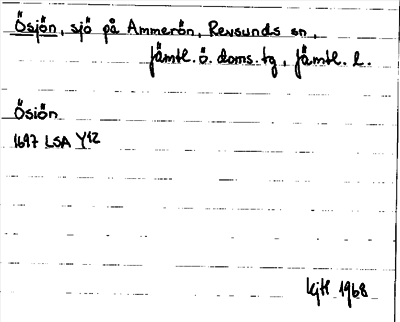 Ösjön, sjö på Ammerön, Revsunds sn,
Jämtl. ö. doms. tg, Jämtl. l.
Ösiön
1697 LSA Y12
kjtl 1968